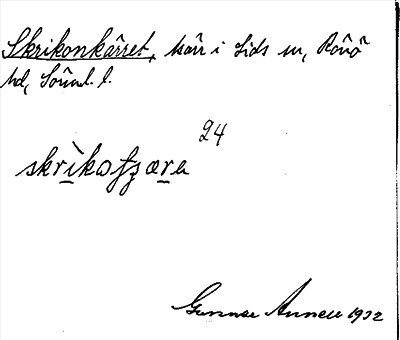 Skrikonkärret, kärr i Lids sn, Rönö
hd, Sörml. l.
24
skrìkaʃʒæra
Gunnar Annell 1932